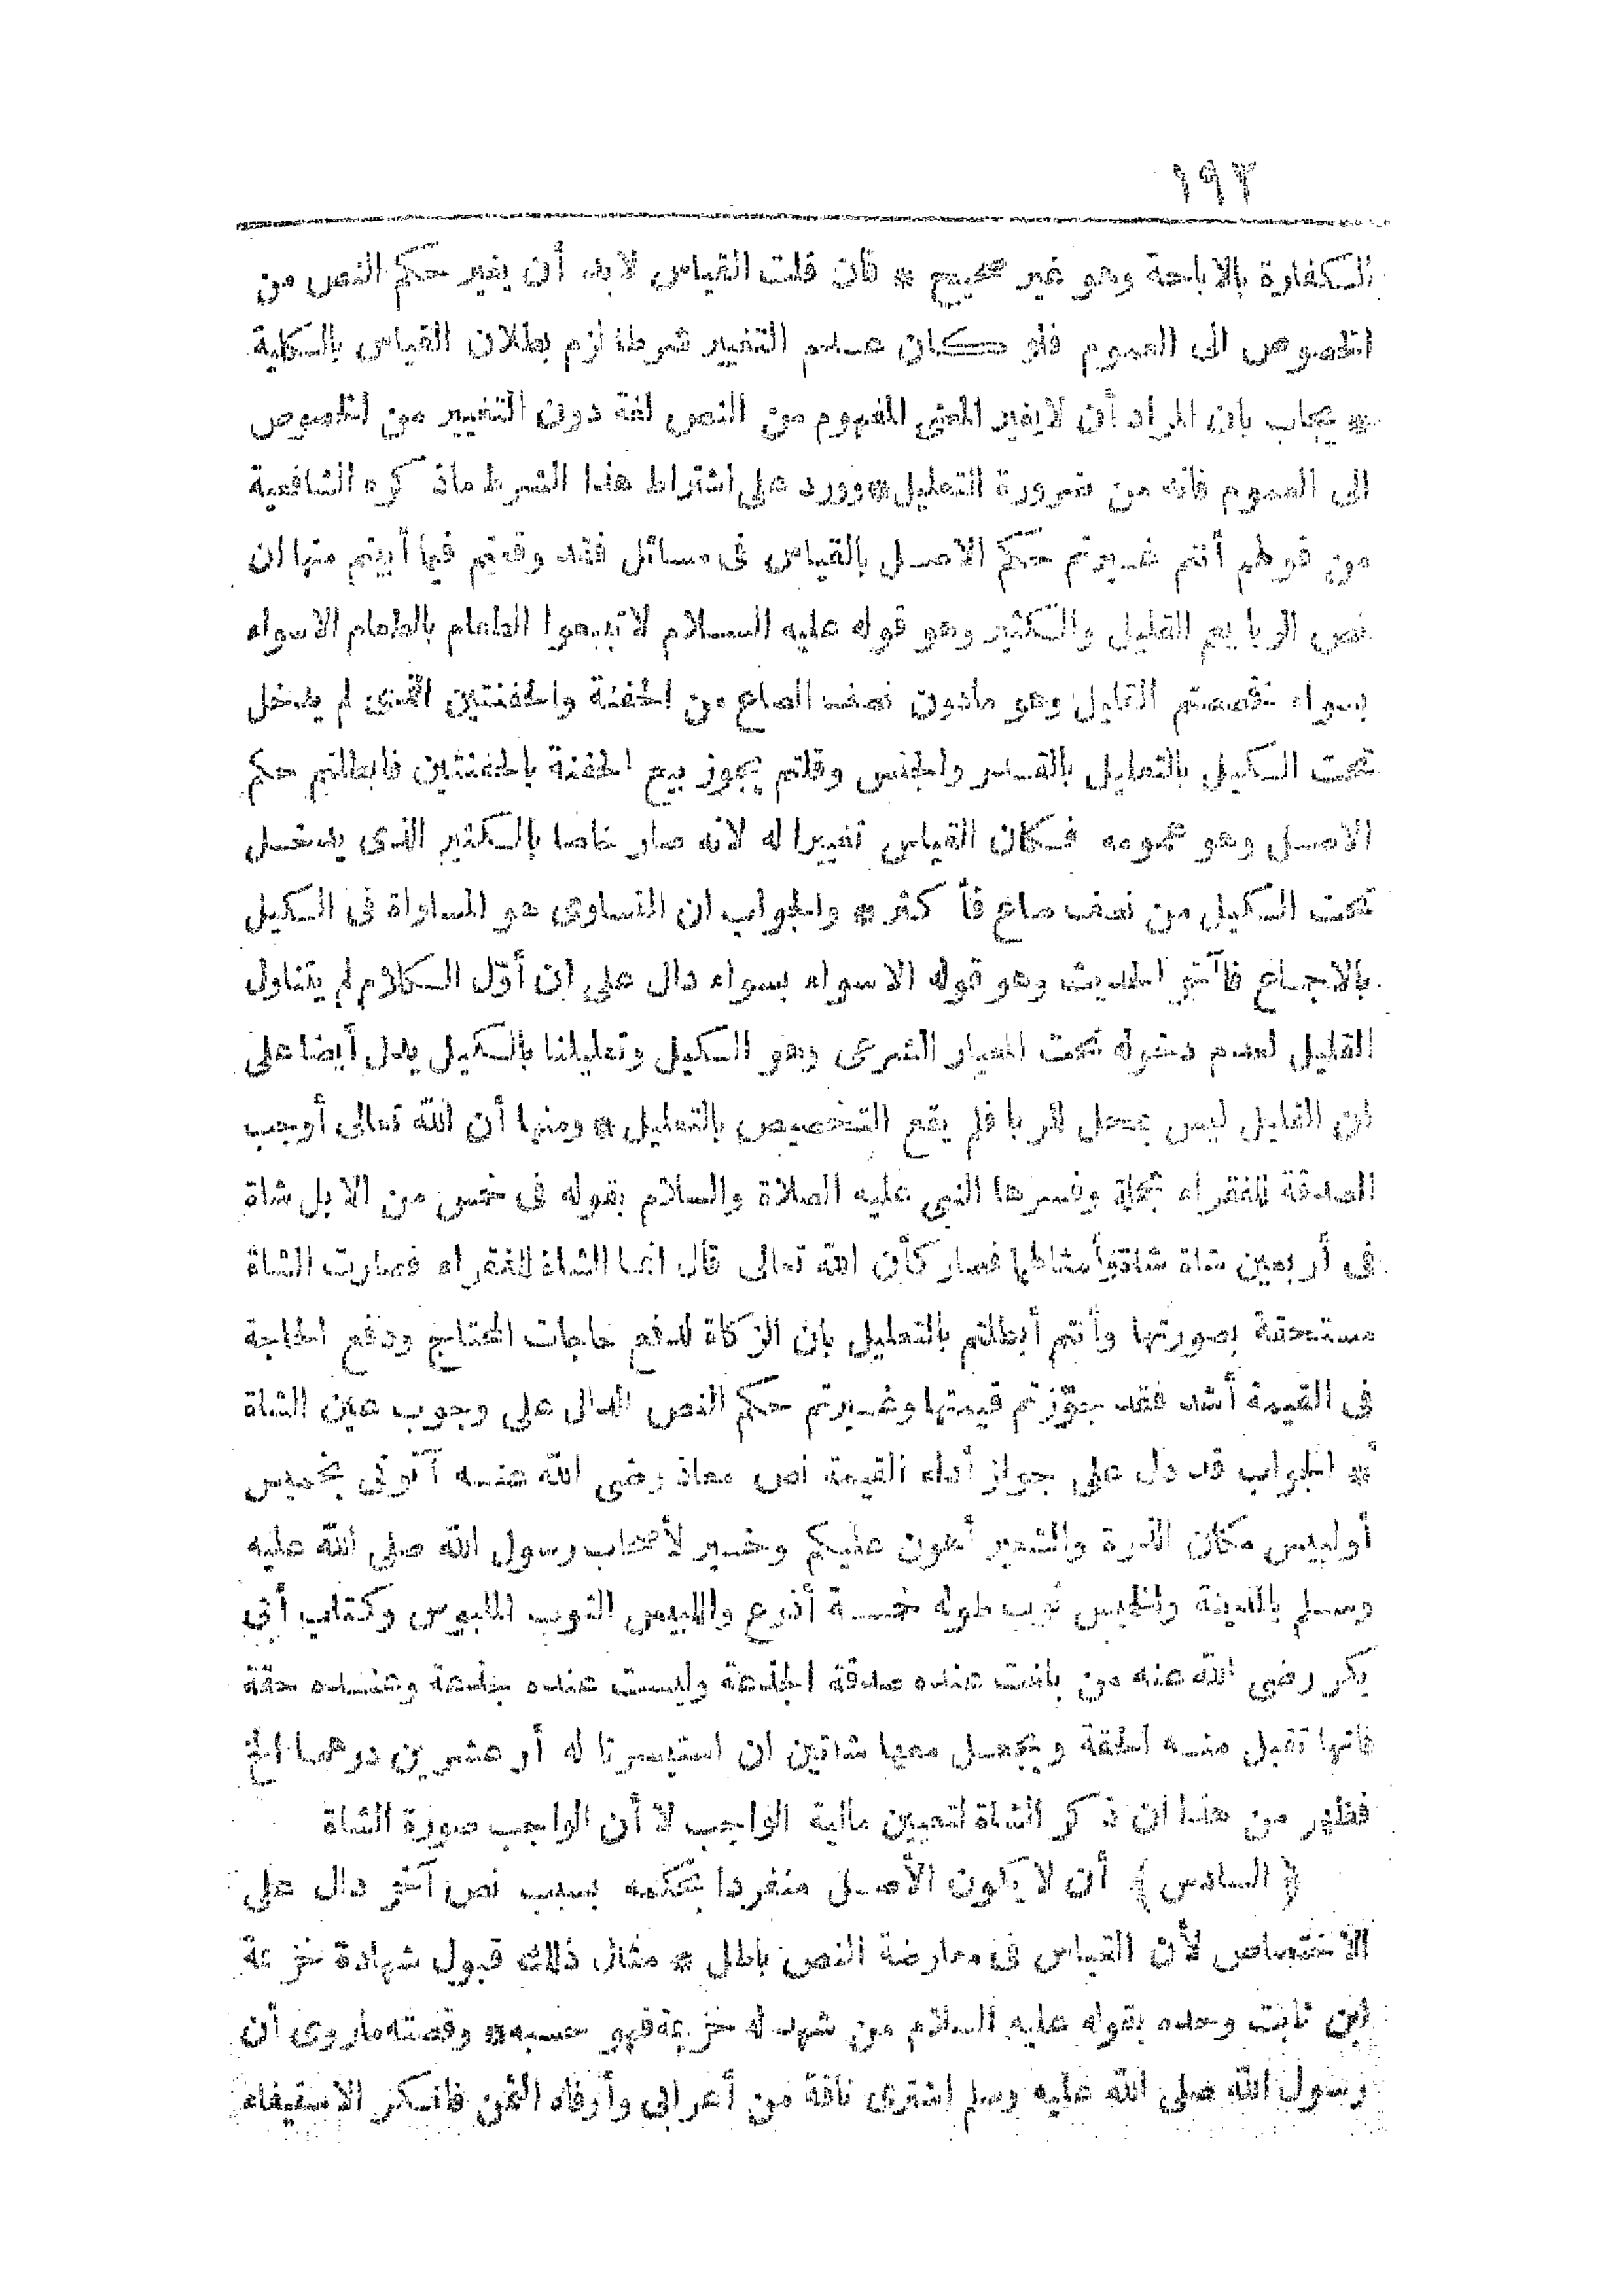 ١٩٣
الكفارة بالاباحة وهو غير صحيح * فان قلت القياس لابد أن يغير حكم النص من
الخصوص الى العموم فلو كان عدم التغيير شرطا لزم بطلان القياس بالكلية
* يجاب بان المراد أن لايغير المعنى المفهوم من النص لغة دون التغيير من الخصوص
الى العموم فانه من ضرورة التعليل * وورد على اشتراط هذا الشرط ماذكره الشافعية
من قولهم أنتم غيرتم حكم الاصل بالقياس فى مسائل فقد وقعتم فيما أبيتم منها ان
نص الربا يعم القليل والكثير وهو قوله عليه السلام لا تبيعوا الطعام بالطعام الاسواء
بسواء نقصتم القليل وهو مادون نصف الصاع من الحفنة والحفنتين الذى لم يدخل
تحت الكيل بالتعليل بالقدر والجنس وقلتم يجوز بيع الحفنة بالحفنتين فابطلتم حكم
الاصل وهو عمومه فكان القياس تغييرا له لانه صار خاصا بالكثير الذى يدخل
تحت الكيل من نصف صاع فأكثر * والجواب ان التساوى هو المساواة فى الكيل
بالاجماع فآخر الحديث وهو قوله الا سواء بسواء دال على ان أوّل الكلام لم يتناول
القليل لعدم دخوله تحت المعيار الشرعى وهو الكيل وتعليلنا بالكيل يدل أيضا على
ان القليل ليس بمحل الربا فلم يقع التخصيص بالتعليل * ومنها أن الله تعالى أوجب
الصدقة للفقراء مجملة وفسرها النبى عليه الصلاة والسلام بقوله فى خمس من الابل شاة
فى أربعين شاة شاة وأمثالها فصار كأن الله تعالى قال انما الشاة للفقراء فصارت الشاة
مستحقة بصورتها وأنتم أبطلتم بالتعليل بان الزكاة لدفع حاجات المحتاج ودفع الحاجة
فى القيمة أشد فقد جوّزتم قيمتها وغيرتم حكم النص الدال على وجوب عين الشاة
* الجواب قد دل على جواز أداء القيمة نص معاذ رضى الله عنه آتونى بخميس
أو لبيس مكان الذرة والشعير أهون عليكم وخير لأصحاب رسول الله صلى الله عليه
وسلم بالمدينة والخميس ثوب طوله خمسة أذرع واللبيس الثوب الملبوس وكتاب أبى
بكر رضى الله عنه من بلغت عنده صدقة الجذعة وليست عنده جذعة وعنده حقة
فانها تقبل منه الحقة ويجعل معها شاتين ان استيسرتا له أو عشرين درهما الخ
فظهر من هذا ان ذكر الشاة لتعيين مالية الواجب لا أن الواجب صورة الشاة
﴿ السادس ﴾ أن لا يكون الأصل منفردا بحكمه بسبب نص آخر دال على
الاختصاص لأن القياس فى معارضة النص باطل * مثال ذلك قبول شهادة خزيمة
ابن ثابت وحده بقوله عليه السلام من شهد له خزيمة فهو حسبه * وقصته ماروى أن
رسول الله صلى الله عليه وسلم اشترى ناقة من أعرابى وأوفاه الثمن فانكر الاستيفاء